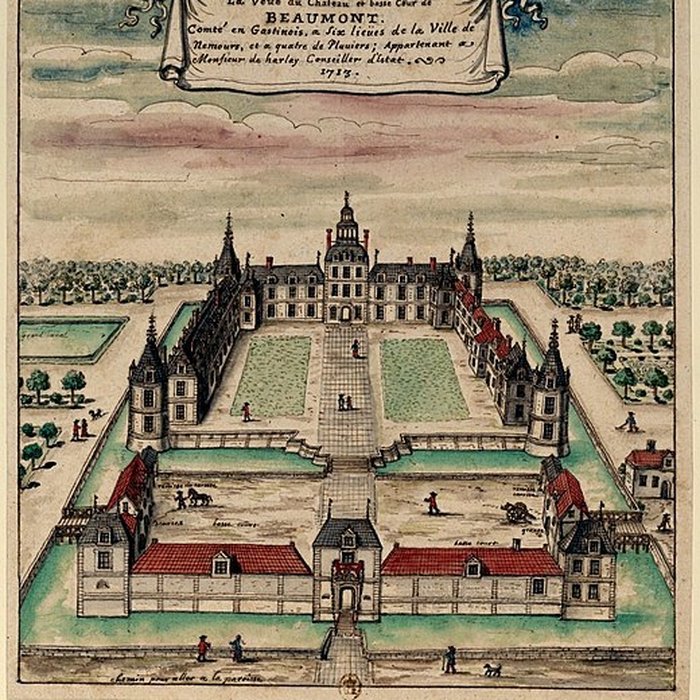 La Veüe du Chateau et basse Cour de
BEAUMONT.
Comté en Gastinois, a Six lieües de la Ville de
Nemours, et a quatre de Pluuiers; Appartenant a
Monsieur de harlay Conseiller d'Estat.
1713.
grand canal
basse court
basse court
chemin pour aller a la paroisse